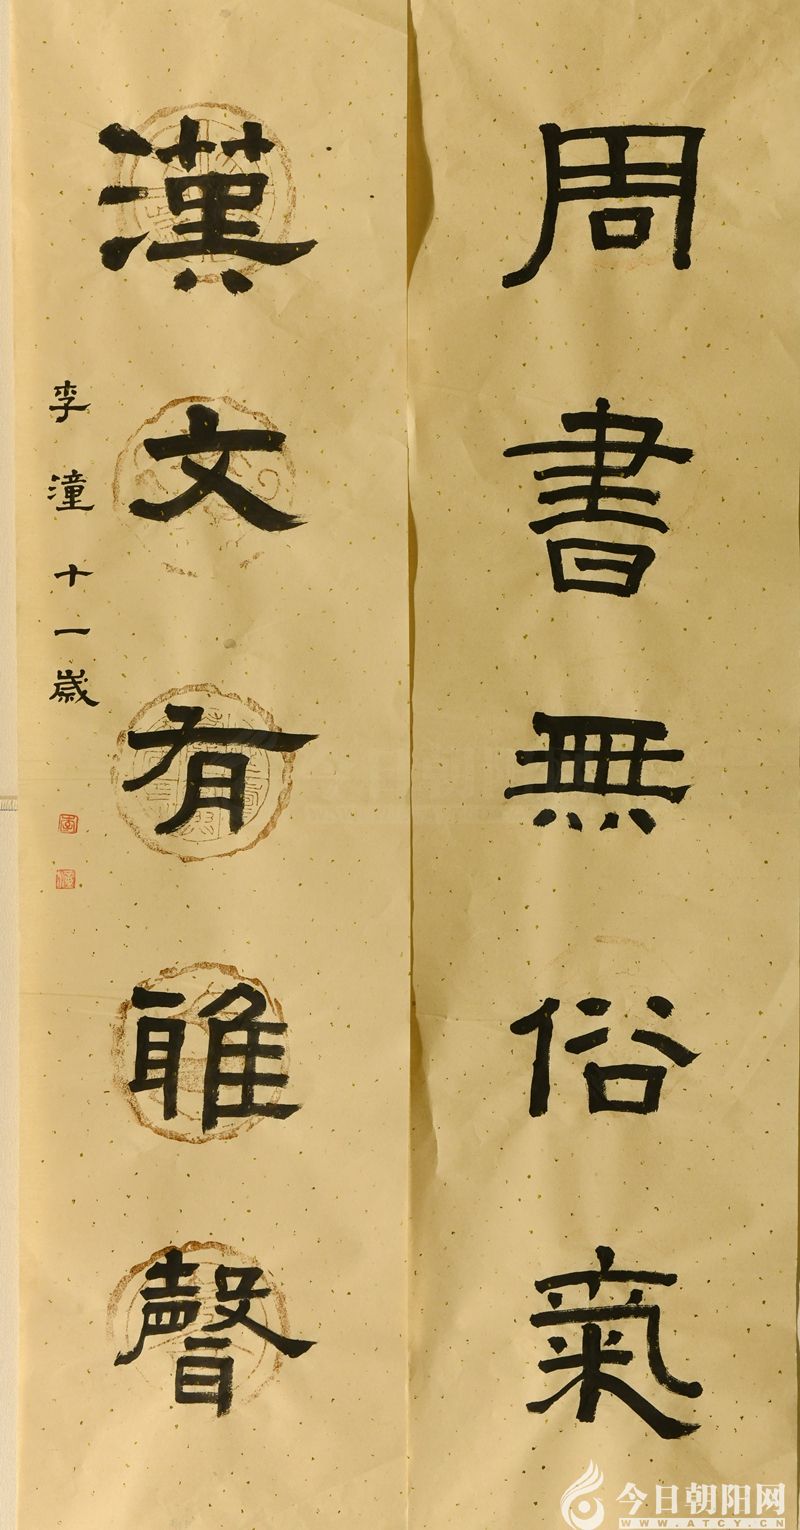 周書無俗氣
漢文有雅聲
李潼十一歲
今日朝阳网
WWW.ATCY.CN